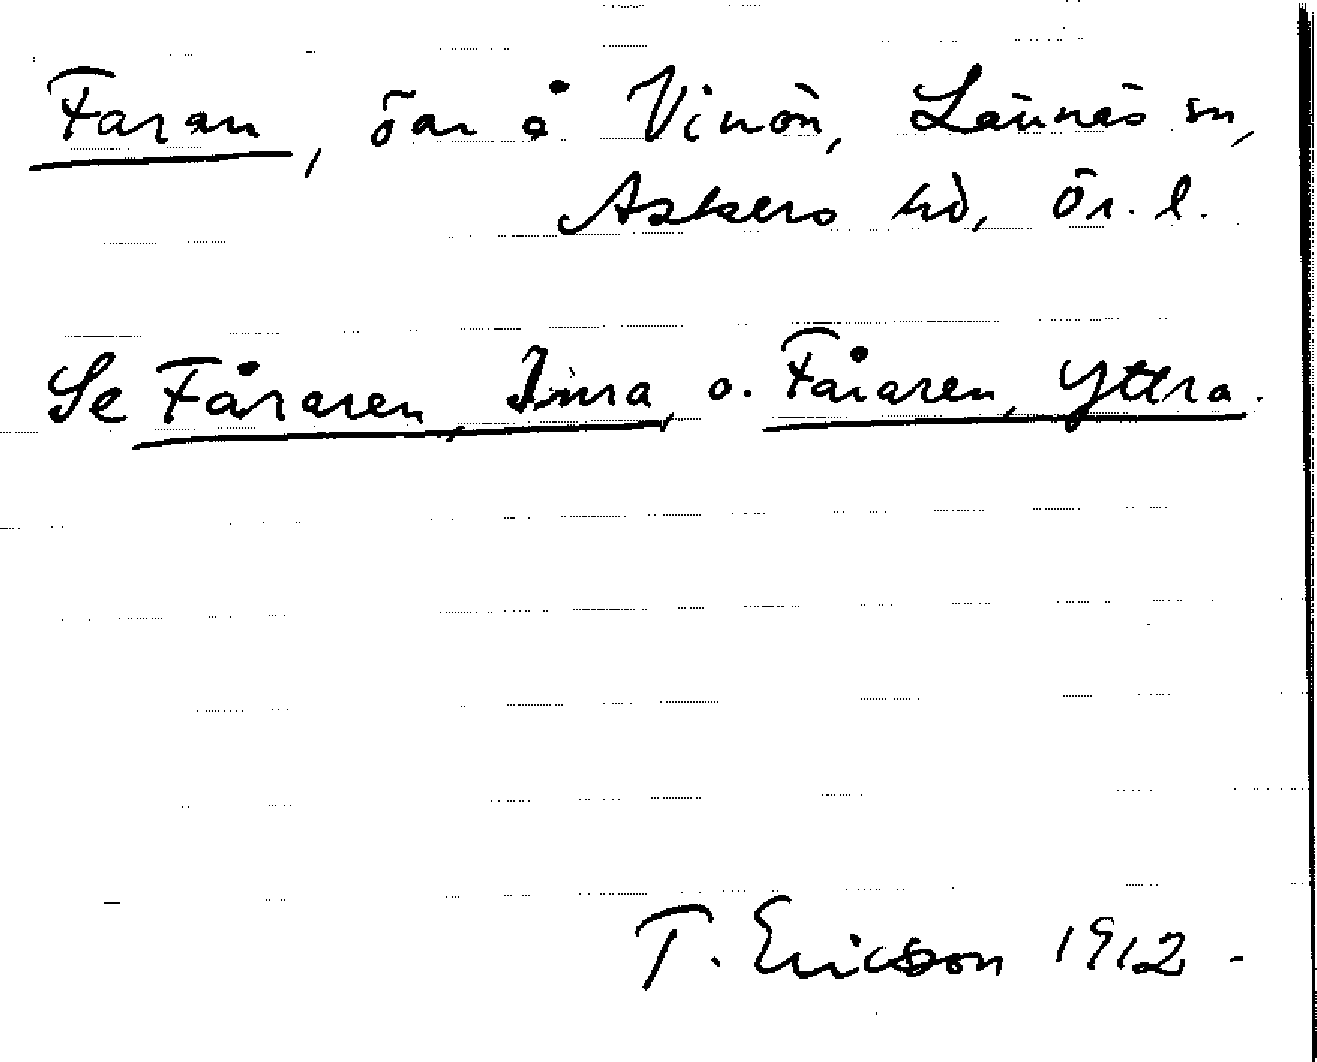 Faran, öar å Vinön, Lännäs sn,
Askers hd, Ör. l.
Se Fåraren, Inra, o. Fåraren, Yttra.
T. Ericson 1912 -